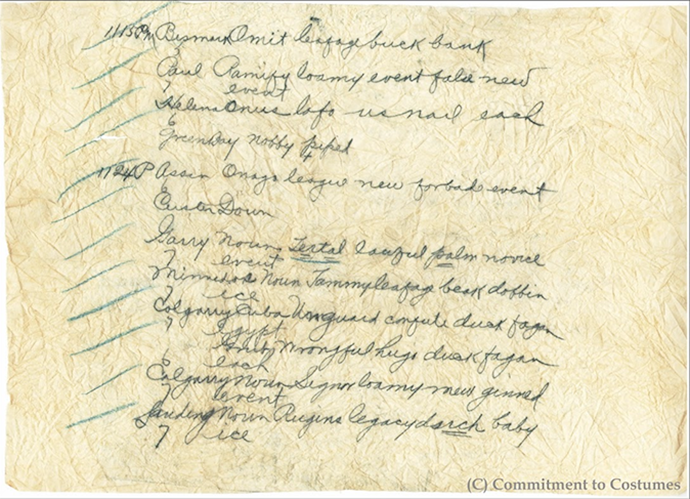 1113PM Bismark Omit leafage buck bank
Paul Ramify loamy event false new
7 event
Helena Onus lofo us nail each
6
GreenBay nobby piped
1124 P Assin Onago league new forbad event
6
Custer Down
Garry Noun Tertal lawful palm novice
7 event
Minnedos Noun Jammy leafage beak dobbin
7 ice
Calgarry Cuba Unguard confute duck fagan
7 egypt
Wrongful hugo duck fagan
6 each
Calgarry Noun Signor loamy mew ginned
7 event
Landing Noun Rugins legacy duck baby
7 ice
(C) Commitment to Costumes